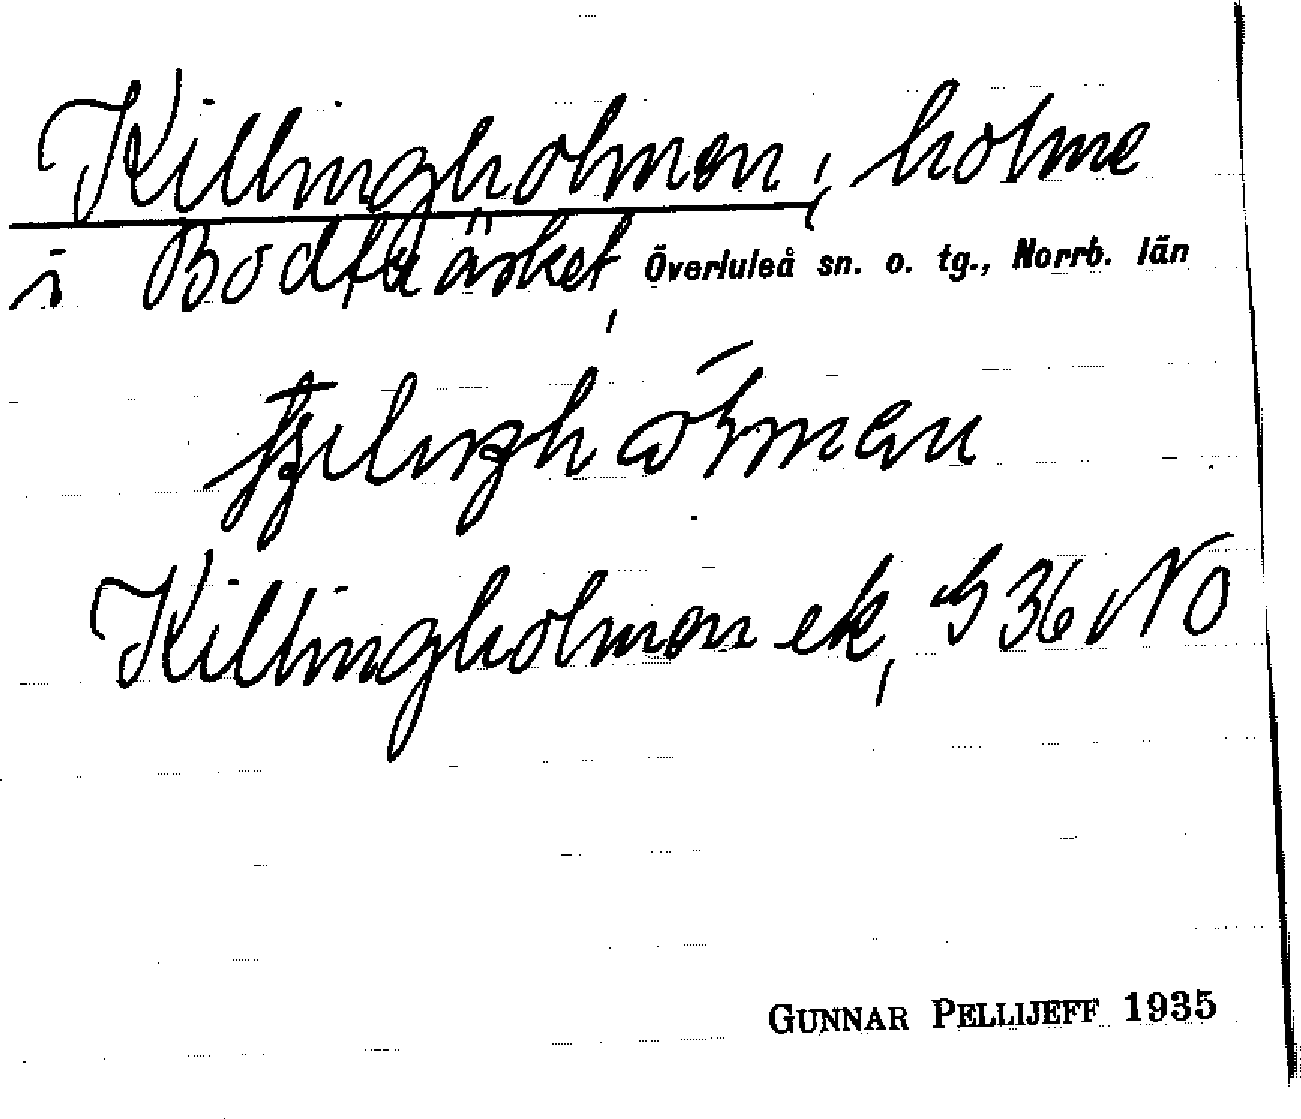 Killingholmen, holme
i Bodträsket, Överluleå sn. o. tg., Norrb. län
Killingholmen ek, G 36 NO
GUNNAR PELLIJEFF 1935